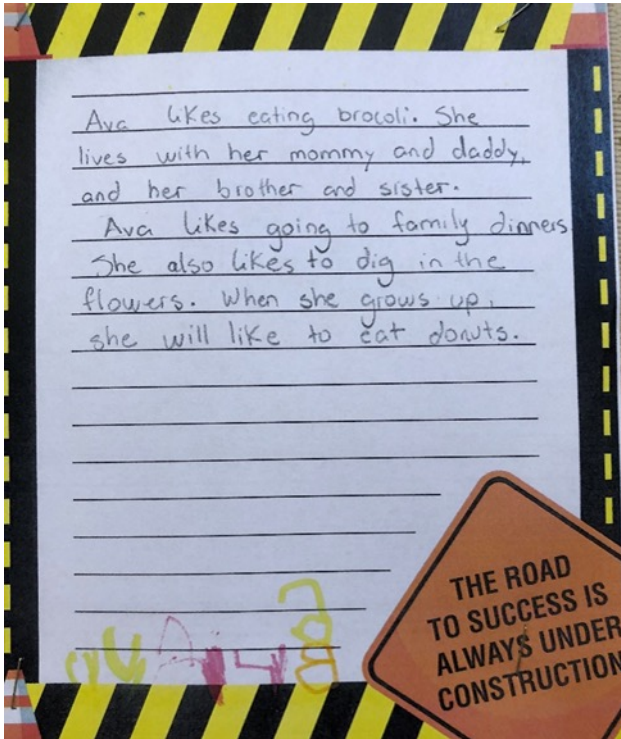 Ava likes eating brocoli. She
lives with her mommy and daddy,
and her brother and sister.
Ava likes going to family dinners.
She also likes to dig in the
flowers. When she grows up,
she will like to eat donuts.
THE ROAD
TO SUCCESS IS
ALWAYS UNDER
CONSTRUCTION